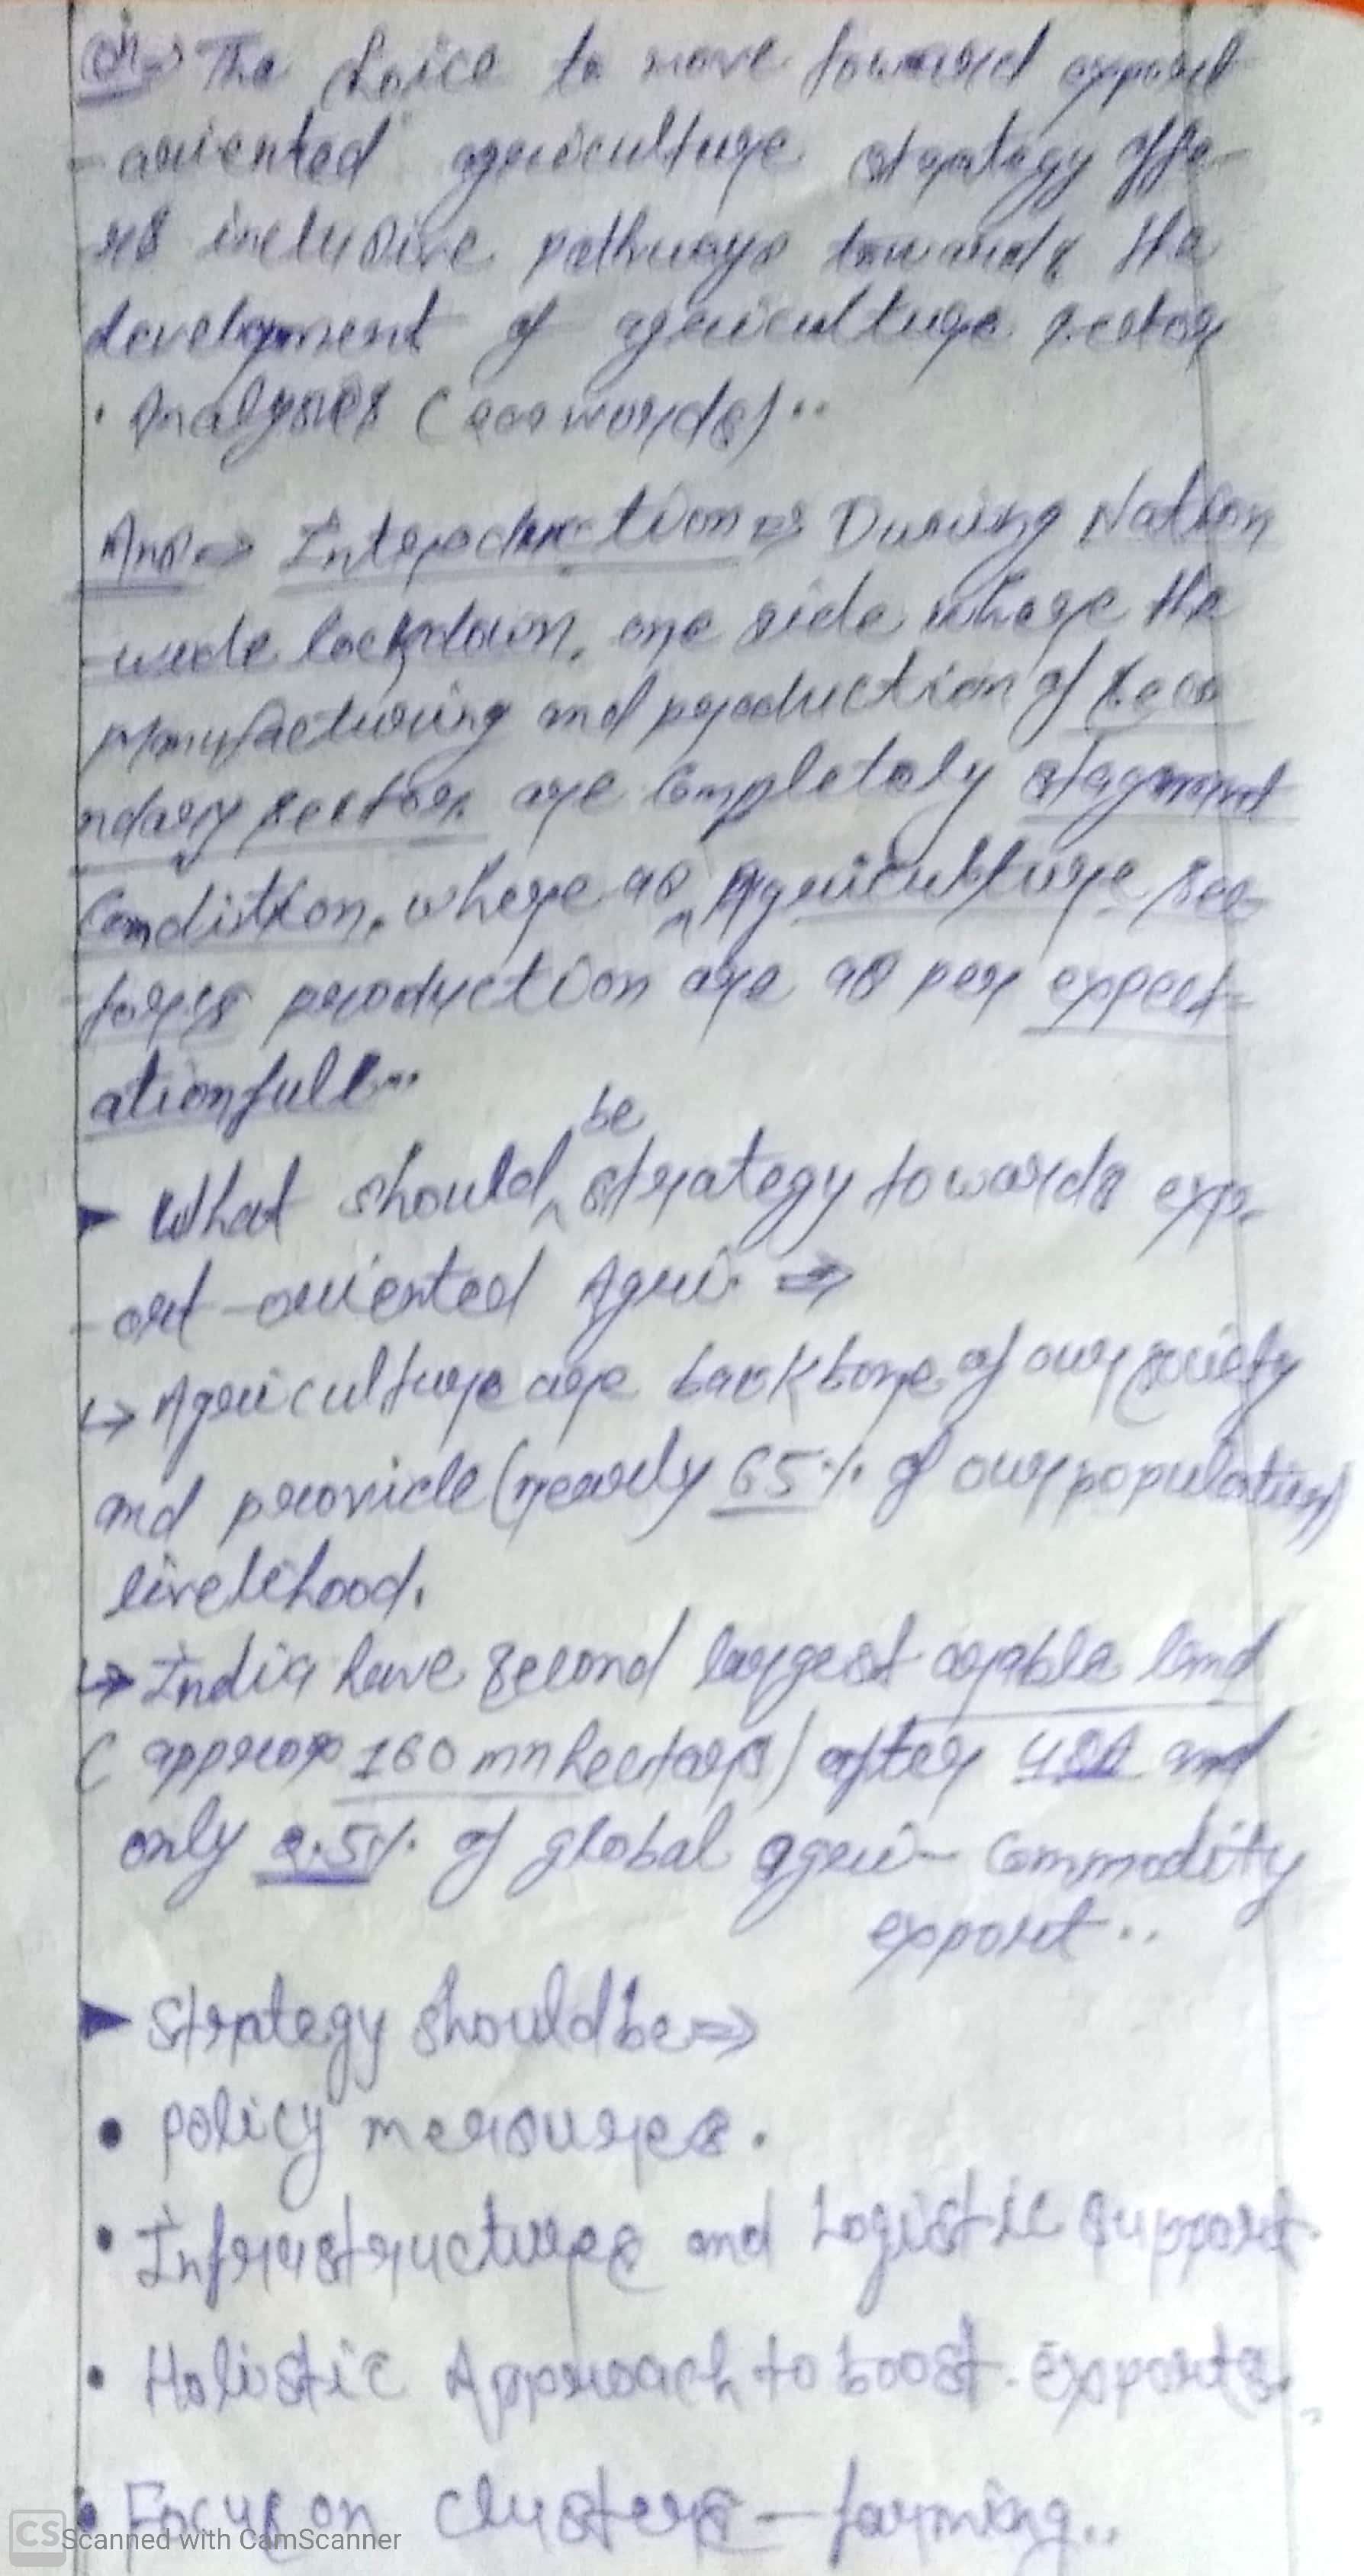 Q1⇒ The choice to move forward export
-oriented agriculture strategy offe-
rs inclusive pathways towards the
development of agriculture sector
. Analyses (200 words)..
Ans⇒ Introduction⇒ During Nation
-wide lockdown, one side where the
manufacturing and production of seco
ndary sector are completely stagnant
condition, where as Agriculture sec-
tors production are as per expect-
ationfull...
▶ What should be strategy towards exp-
ort-oriented Agri. ⇒
↳ Agriculture are backbone of our society
and provide (nearly 65% of our population)
livelihood.
↳ India have second largest arable land
(approx 160 mn hectars) after USA and
only 2.5% of global agri- commodity
export..
▶ Strategy should be⇒
• policy measures.
• Infrastructures and Logistic support.
• Holistic Approach to boost exports.
• Focus on clusters-farming..
CS Scanned with CamScanner